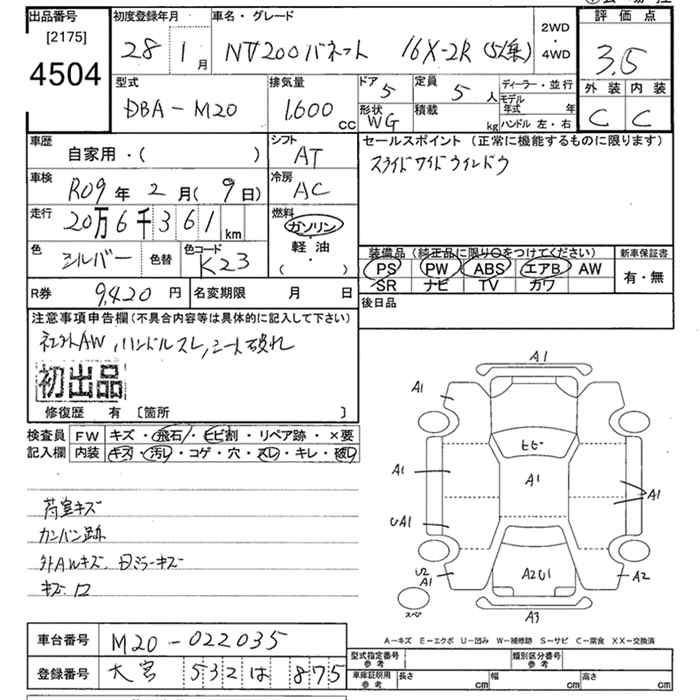 出品番号 初度登録年月 車名・グレード 2WD・4WD 評価点
[2175]
4504 28 1月 NV200バネット 16X-2R (5人乗) 3.5
外装 内装
C C
型式 排気量 ドア 定員 ディーラー・並行
DBA-M20 1,600cc 5 5人 モデル年式 年
形状 積載 ハンドル 左・右
WG kg
車歴 シフト セールスポイント(正常に機能するものに限ります)
自家用・( ) AT スライドワイドウインドウ
車検 冷房
R09年 2月(9日) AC
走行 燃料
20万6千361km ガソリン・軽油( )
色 色替 色コード
シルバー K23
装備品(純正品に限り○をつけてください) 新車保証書
PS PW ABS エアB AW 有・無
SR ナビ TV カワ
R券 9,420円 名変期限 月 日 後日品
注意事項申告欄(不具合内容等は具体的に記入して下さい)
社外AW,ハンドルスレ,シート破れ
初出品
修復歴 有 [箇所 ]
検査員 FW キズ・飛石・ヒビ割・リペア跡・×要
記入欄 内装 キズ・汚レ・コゲ・穴・スレ・キレ・破レ
荷室キズ
カンバン跡
外AWキズ、日ミラーキズ
A1
A1
ヒビ
A1 A1 A1
UA1
U2 A1 A2U1 A2
スペア
A3
A-キズ E-エクボ U-凹み W-補修跡 S-サビ C-腐食 XX-交換済
車台番号 M20-022035
登録番号 大宮 532 は 875
型式指定番号 参考 類別区分番号 参考
車庫証明用 参考 長さ cm 幅 cm 高さ cm